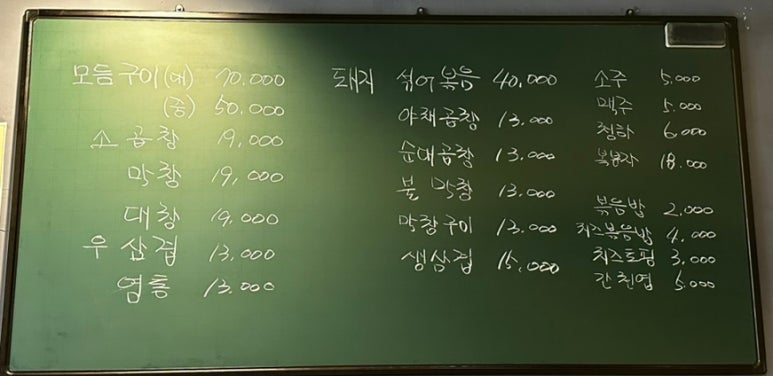 모듬구이(대) 70.000
(중) 50.000
소 곱창 19.000
막창 19,000
대창 19.000
우 삼겹 13,000
염통 13.000
돼지 섞어볶음 40.000
야채곱창 13.000
순대곱창 13.000
불 막창 13.000
막창구이 13.000
생삼겹 15,000
소주 5.000
맥주 5.000
청하 6.000
복분자 18.000
볶음밥 2.000
치즈볶음밥 4.000
치즈토핑 3,000
간천엽 5.000